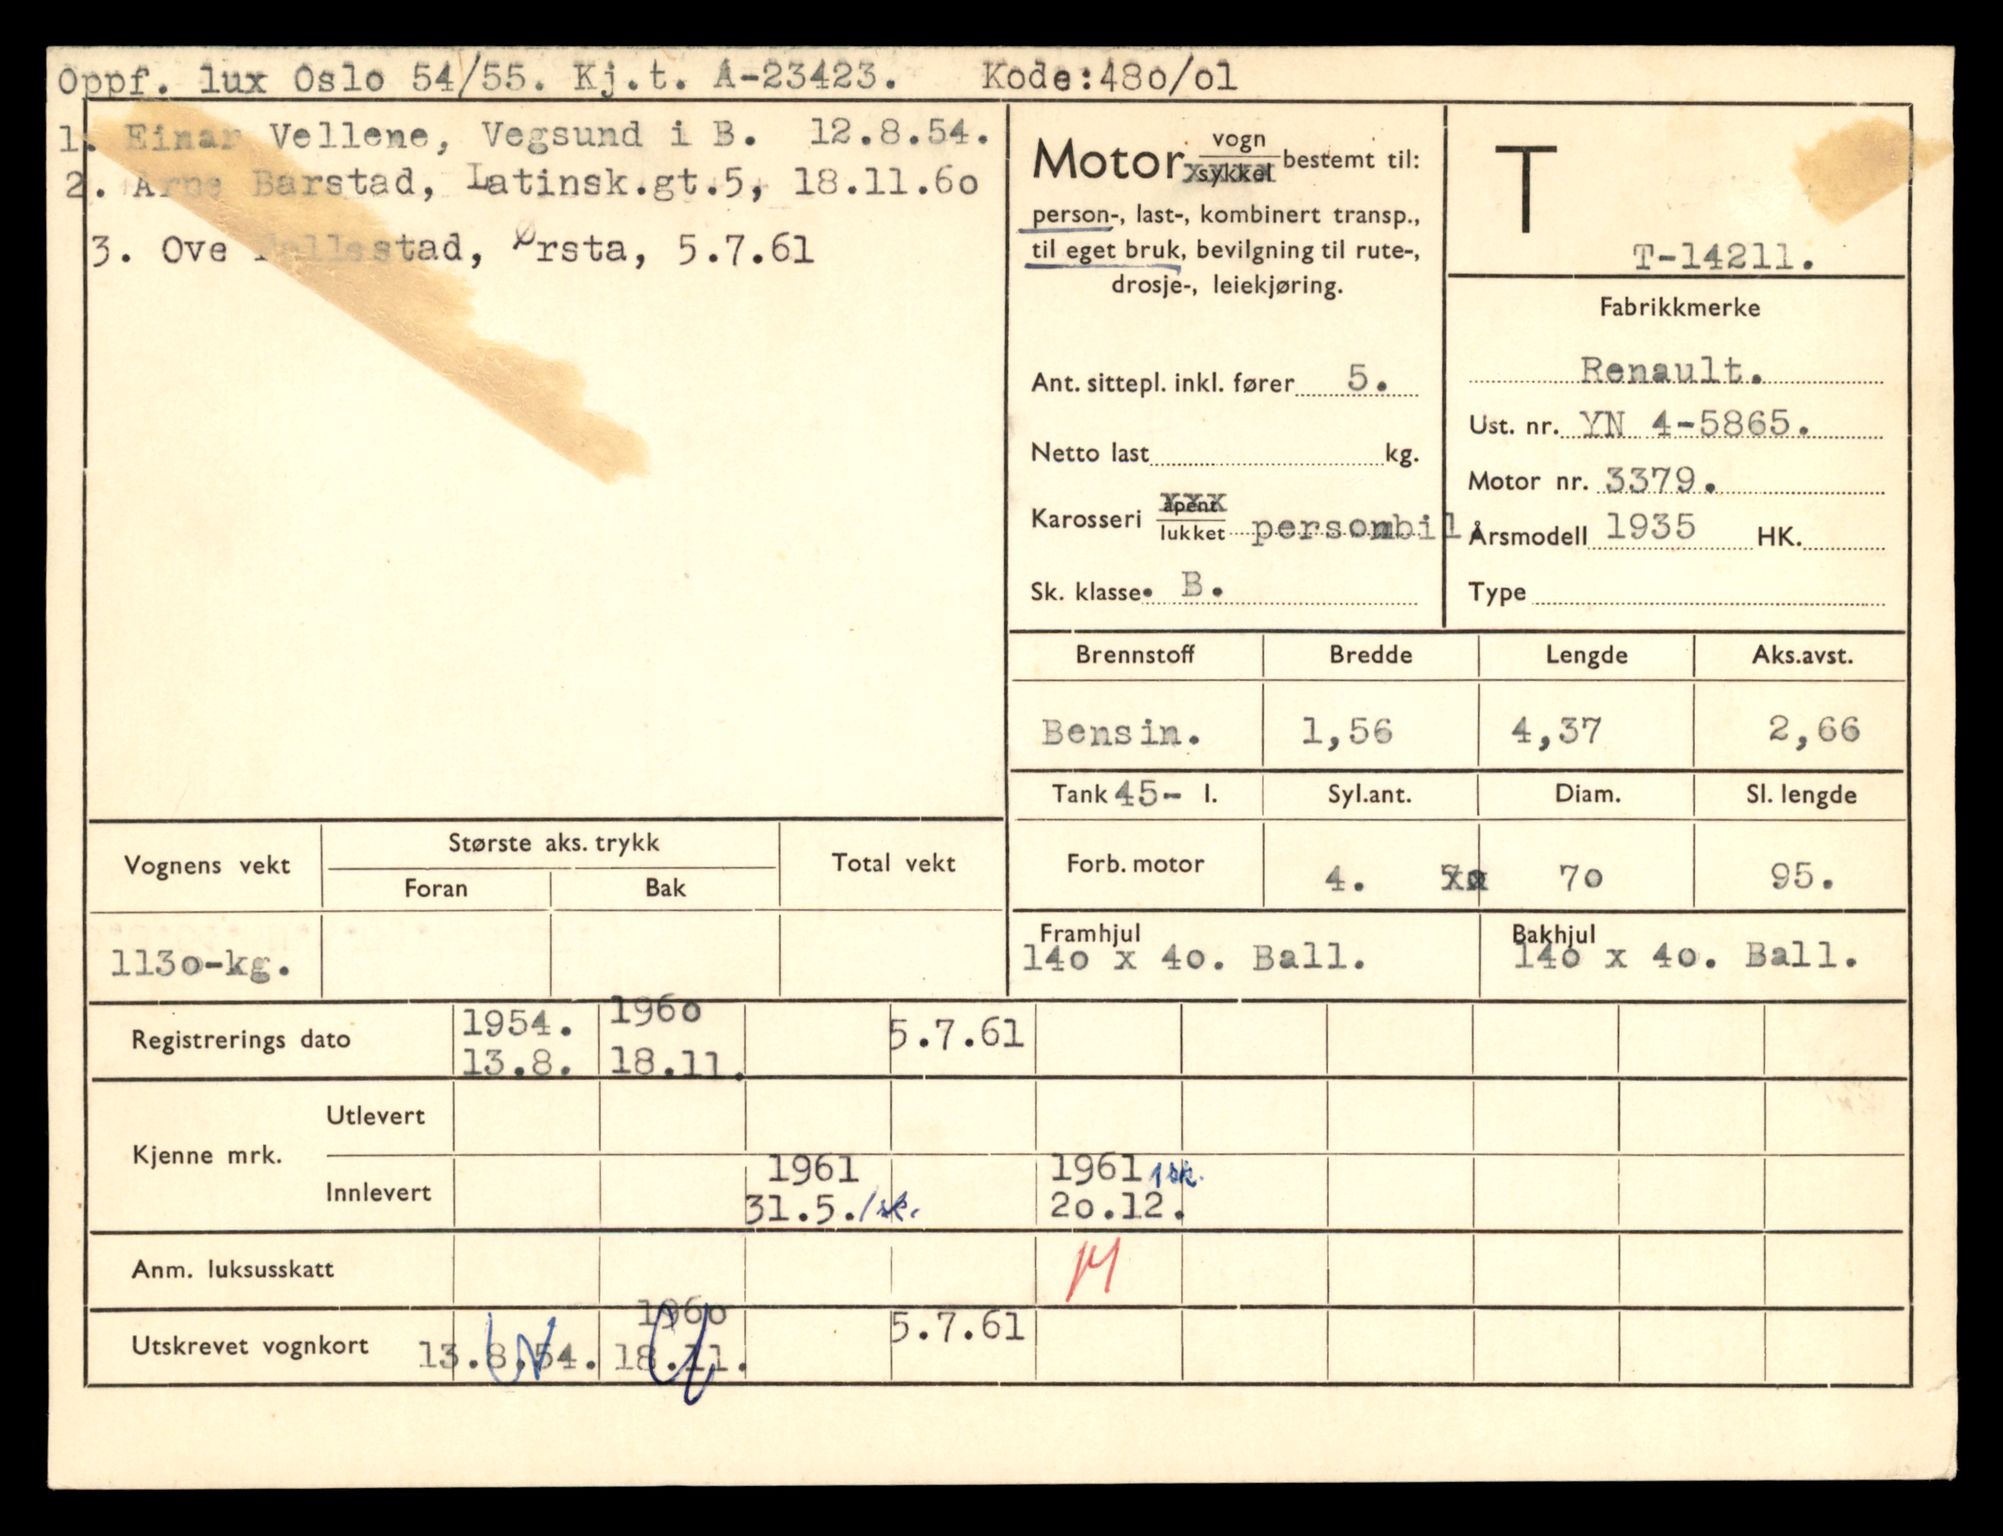 Oppf. lux Oslo 54/55. Kj.t. A-23423. Kode:48o/o1
1. Einar Vellene, Vegsund i B. 12.8.54.
2. Arne Barstad, Latinsk.gt.5, 18.11.6o
3. Ove Mallestad, Ørsta, 5.7.61
Motor vogn sykkel bestemt til:
person-, last-, kombinert transp.,
til eget bruk, bevilgning til rute-,
drosje-, leiekjøring.
Ant. sittepl. inkl. fører 5.
Netto last kg.
Karosseri åpent lukket personbil.
Sk. klasse. B.
T
T-14211.
Fabrikkmerke
Renault.
Ust. nr. YN 4-5865.
Motor nr. 3379.
Årsmodell 1935 HK.
Type
Brennstoff Bredde Lengde Aks.avst.
Bensin. 1,56 4,37 2,66
Tank 45- l. Syl.ant. Diam. Sl. lengde
Forb. motor 4. 7o 95.
Framhjul Bakhjul
14o x 4o. Ball. 14o x 4o. Ball.
Vognens vekt Største aks. trykk Total vekt
Foran Bak
113o-kg.
Registrerings dato 1954. 13.8. 196o 18.11. 5.7.61
Kjenne mrk.
Utlevert
Innlevert 1961 31.5. 1 sk. 1961 1 sk. 2o.12.
Anm. luksusskatt
Utskrevet vognkort 13.8.54. 196o 18.11. 5.7.61